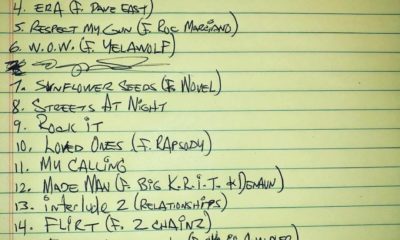 4. ERA (F. DAVE EAST)
5. RESPECT MY GUN (F. ROC MARCIANO)
6. W.O.W. (F. YELAWOLF)
7. SUNFLOWER SEEDS (F. NOVEL)
8. STREETS AT NIGHT
9. ROCK IT
10. LOVED ONES (F. RAPSODY)
11. MY CALLING
12. MADE MAN (F. BIG K.R.I.T. & DENAUN)
13. INTERLUDE 2 (RELATIONSHIPS)
14. FLIRT (F. 2 CHAINZ)